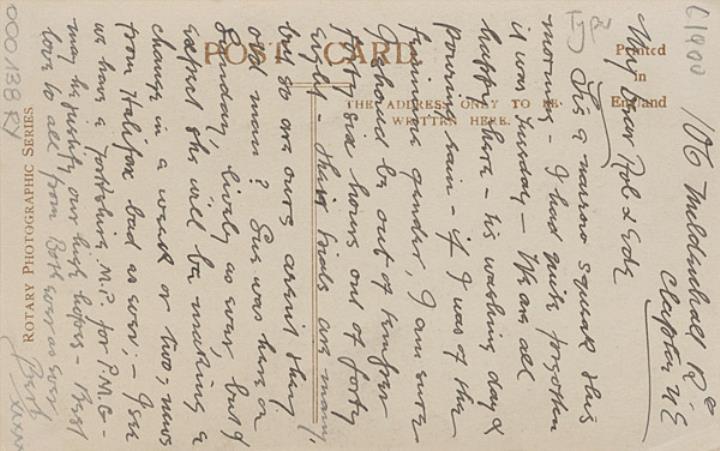 C1900
106 Mildenhall Rd
Clapton N E
My Dear Rob & Edy
Tis a narrow squeak this
morning - I had quite forgotten
it was Tuesday - We are all
happy here - tis washing day &
pouring rain - if I was of the
feminine gender, I am sure
I should be out of temper
forty six hours out of forty
eight - their trials are many,
but so are ours arent they
old man? Sue was here on
Sunday, lively as ever, but I
expect she will be making a
change in a week or two; news
from Halifax bad as ever; - I see
we have a Yorkshire M.P. for P.M.G -
may he justify our high hopes - Best
love to all from Both ever as ever,
Bert
xxxxx
POST CARD.
Printed
in
England
THE ADDRESS ONLY TO BE
WRITTEN HERE.
ROTARY PHOTOGRAPHIC SERIES
000138 RY